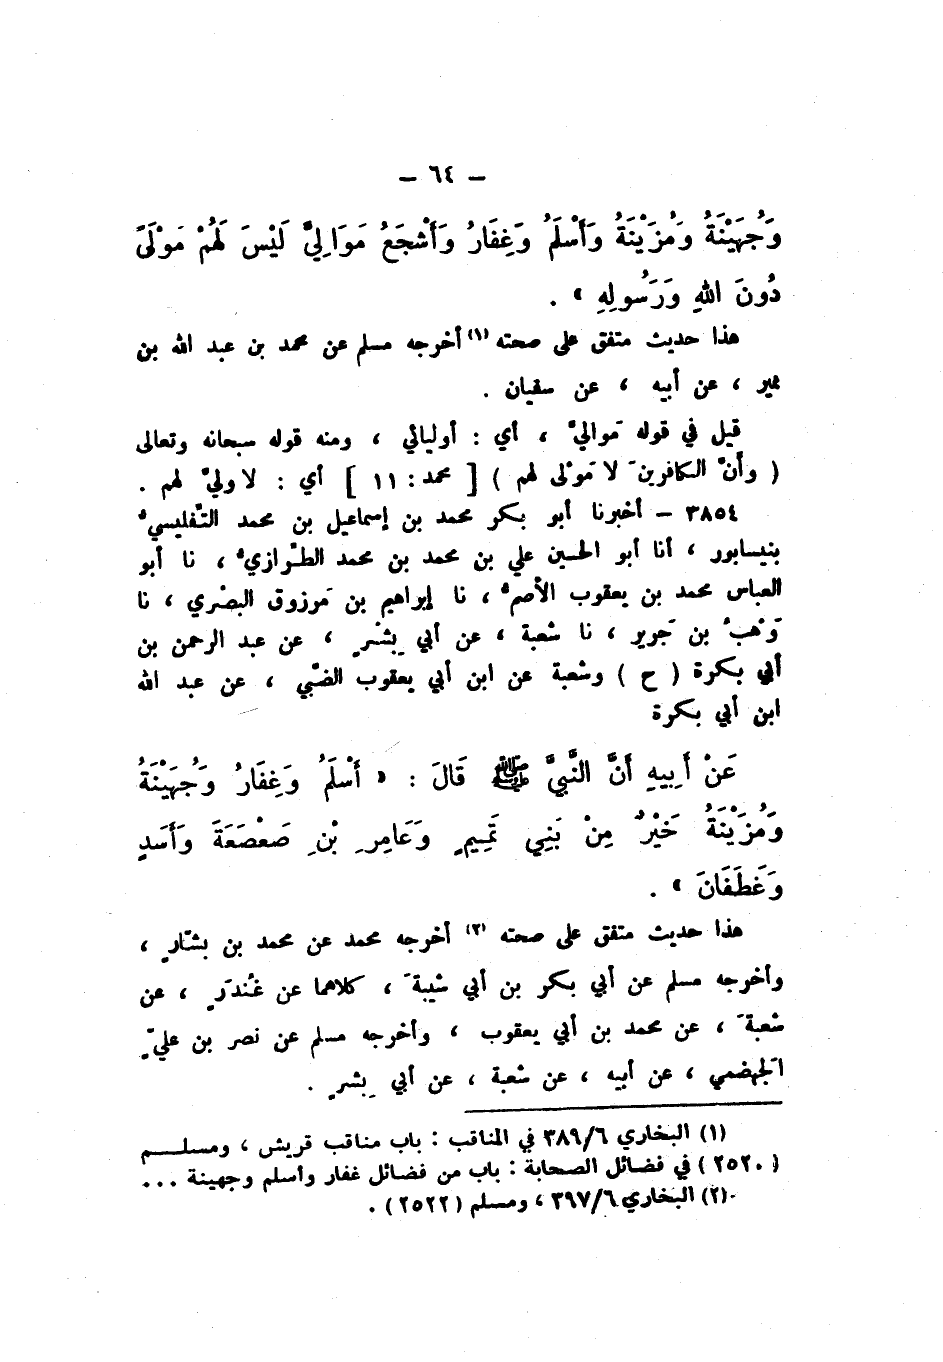 ـ ٦٤ ـ
وَجُهَيْنَةُ وَمُزَيْنَةُ وَأَسْلَمُ وَغِفَارُ وَأَشْجَعُ مَوَالِيَّ لَيْسَ لَهُمْ مَوْلَىً
دُونَ اللهِ وَرَسُولِهِ » .
هذا حديث متفق على صحته (١) أخرجه مسلم عن محمد بن عبد الله بن
نمير ، عن أبيه ، عن سفيان .
قيل في قوله مَواليَّ ، أي : أوليائي ، ومنه قوله سبحانه وتعالى
( وأنَّ الكافرينَ لا مَوْلى لهم ) [ محمد : ١١ ] أي : لا وليَّ لهم .
٣٨٥٤ ـ أخبرنا أبو بكر محمد بن إسماعيل بن محمد التَّفليسيُّ
بنيسابور ، أنا أبو الحسين علي بن محمد بن محمد الطِّرازيُّ ، نا أبو
العباس محمد بن يعقوب الأصمُّ ، نا إبراهيم بن مَرزوق البصْري ، نا
وَهْبُ بن جَرير ، نا شُعبة ، عن أبي بِشْرٍ ، عن عبد الرحمن بن
أبي بكرة ( ح ) وشُعبة عن ابن أبي يعقوب الضَّبي ، عن عبد الله
ابن أبي بكرة
عَنْ أَبِيهِ أَنَّ النَّبِيَّ ﷺ قَالَ : « أَسْلَمُ وَغِفَارُ وَجُهَيْنَةُ
وَمُزَيْنَةُ خَيْرٌ مِنْ بَنِي تَمِيمٍ وَعَامِرِ بْنِ صَعْصَعَةَ وَأَسَدٍ
وَغَطَفَانَ » .
هذا حديث متفق على صحته (٢) أخرجه محمد عن محمد بن بشَّارٍ ،
وأخرجه مسلم عن أبي بكر بن أبي شيبةَ ، كلاهما عن غُندَرٍ ، عن
شعبةَ ، عن محمد بن أبي يعقوب ، وأخرجه مسلم عن نصر بن عليٍّ
الجَهضمي ، عن أبيه ، عن شعبة ، عن أبي بِشرٍ .
(١) البخاري ٣٨٩/٦ في المناقب : باب مناقب قريش ، ومسلم
( ٢٥٢٠ ) في فضائل الصحابة : باب من فضائل غفار وأسلم وجهينة ...
(٢) البخاري ٣٩٧/٦ ، ومسلم (٢٥٢٢) .